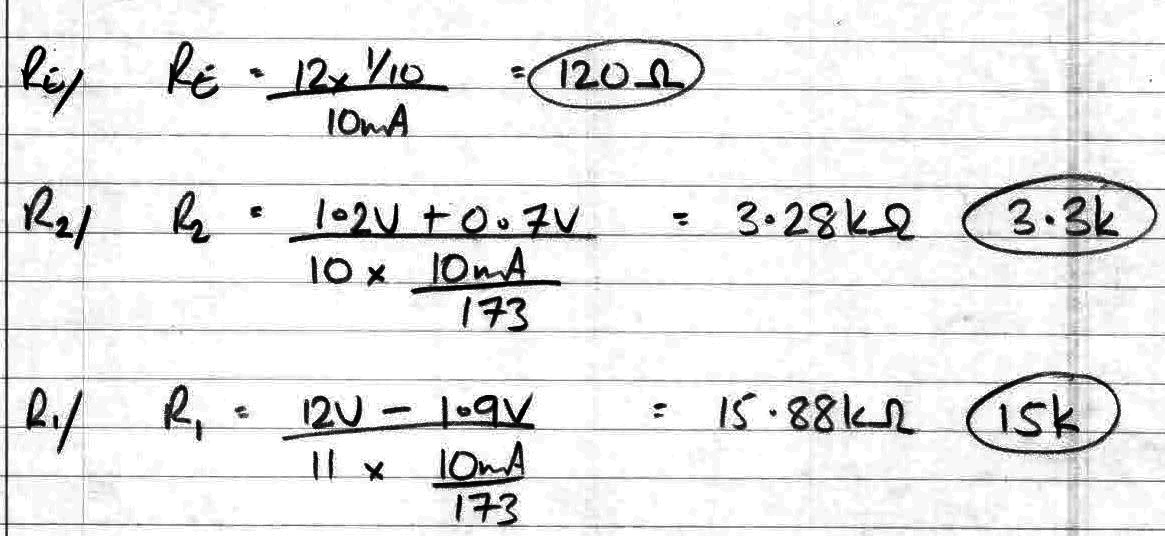 RE/ RE = 12 x 1/10 / 10mA = 120Ω
R2/ R2 = 1.2V + 0.7V / 10 x 10mA / 173 = 3.28kΩ 3.3k
R1/ R1 = 12V - 1.9V / 11 x 10mA / 173 = 15.88kΩ 15k